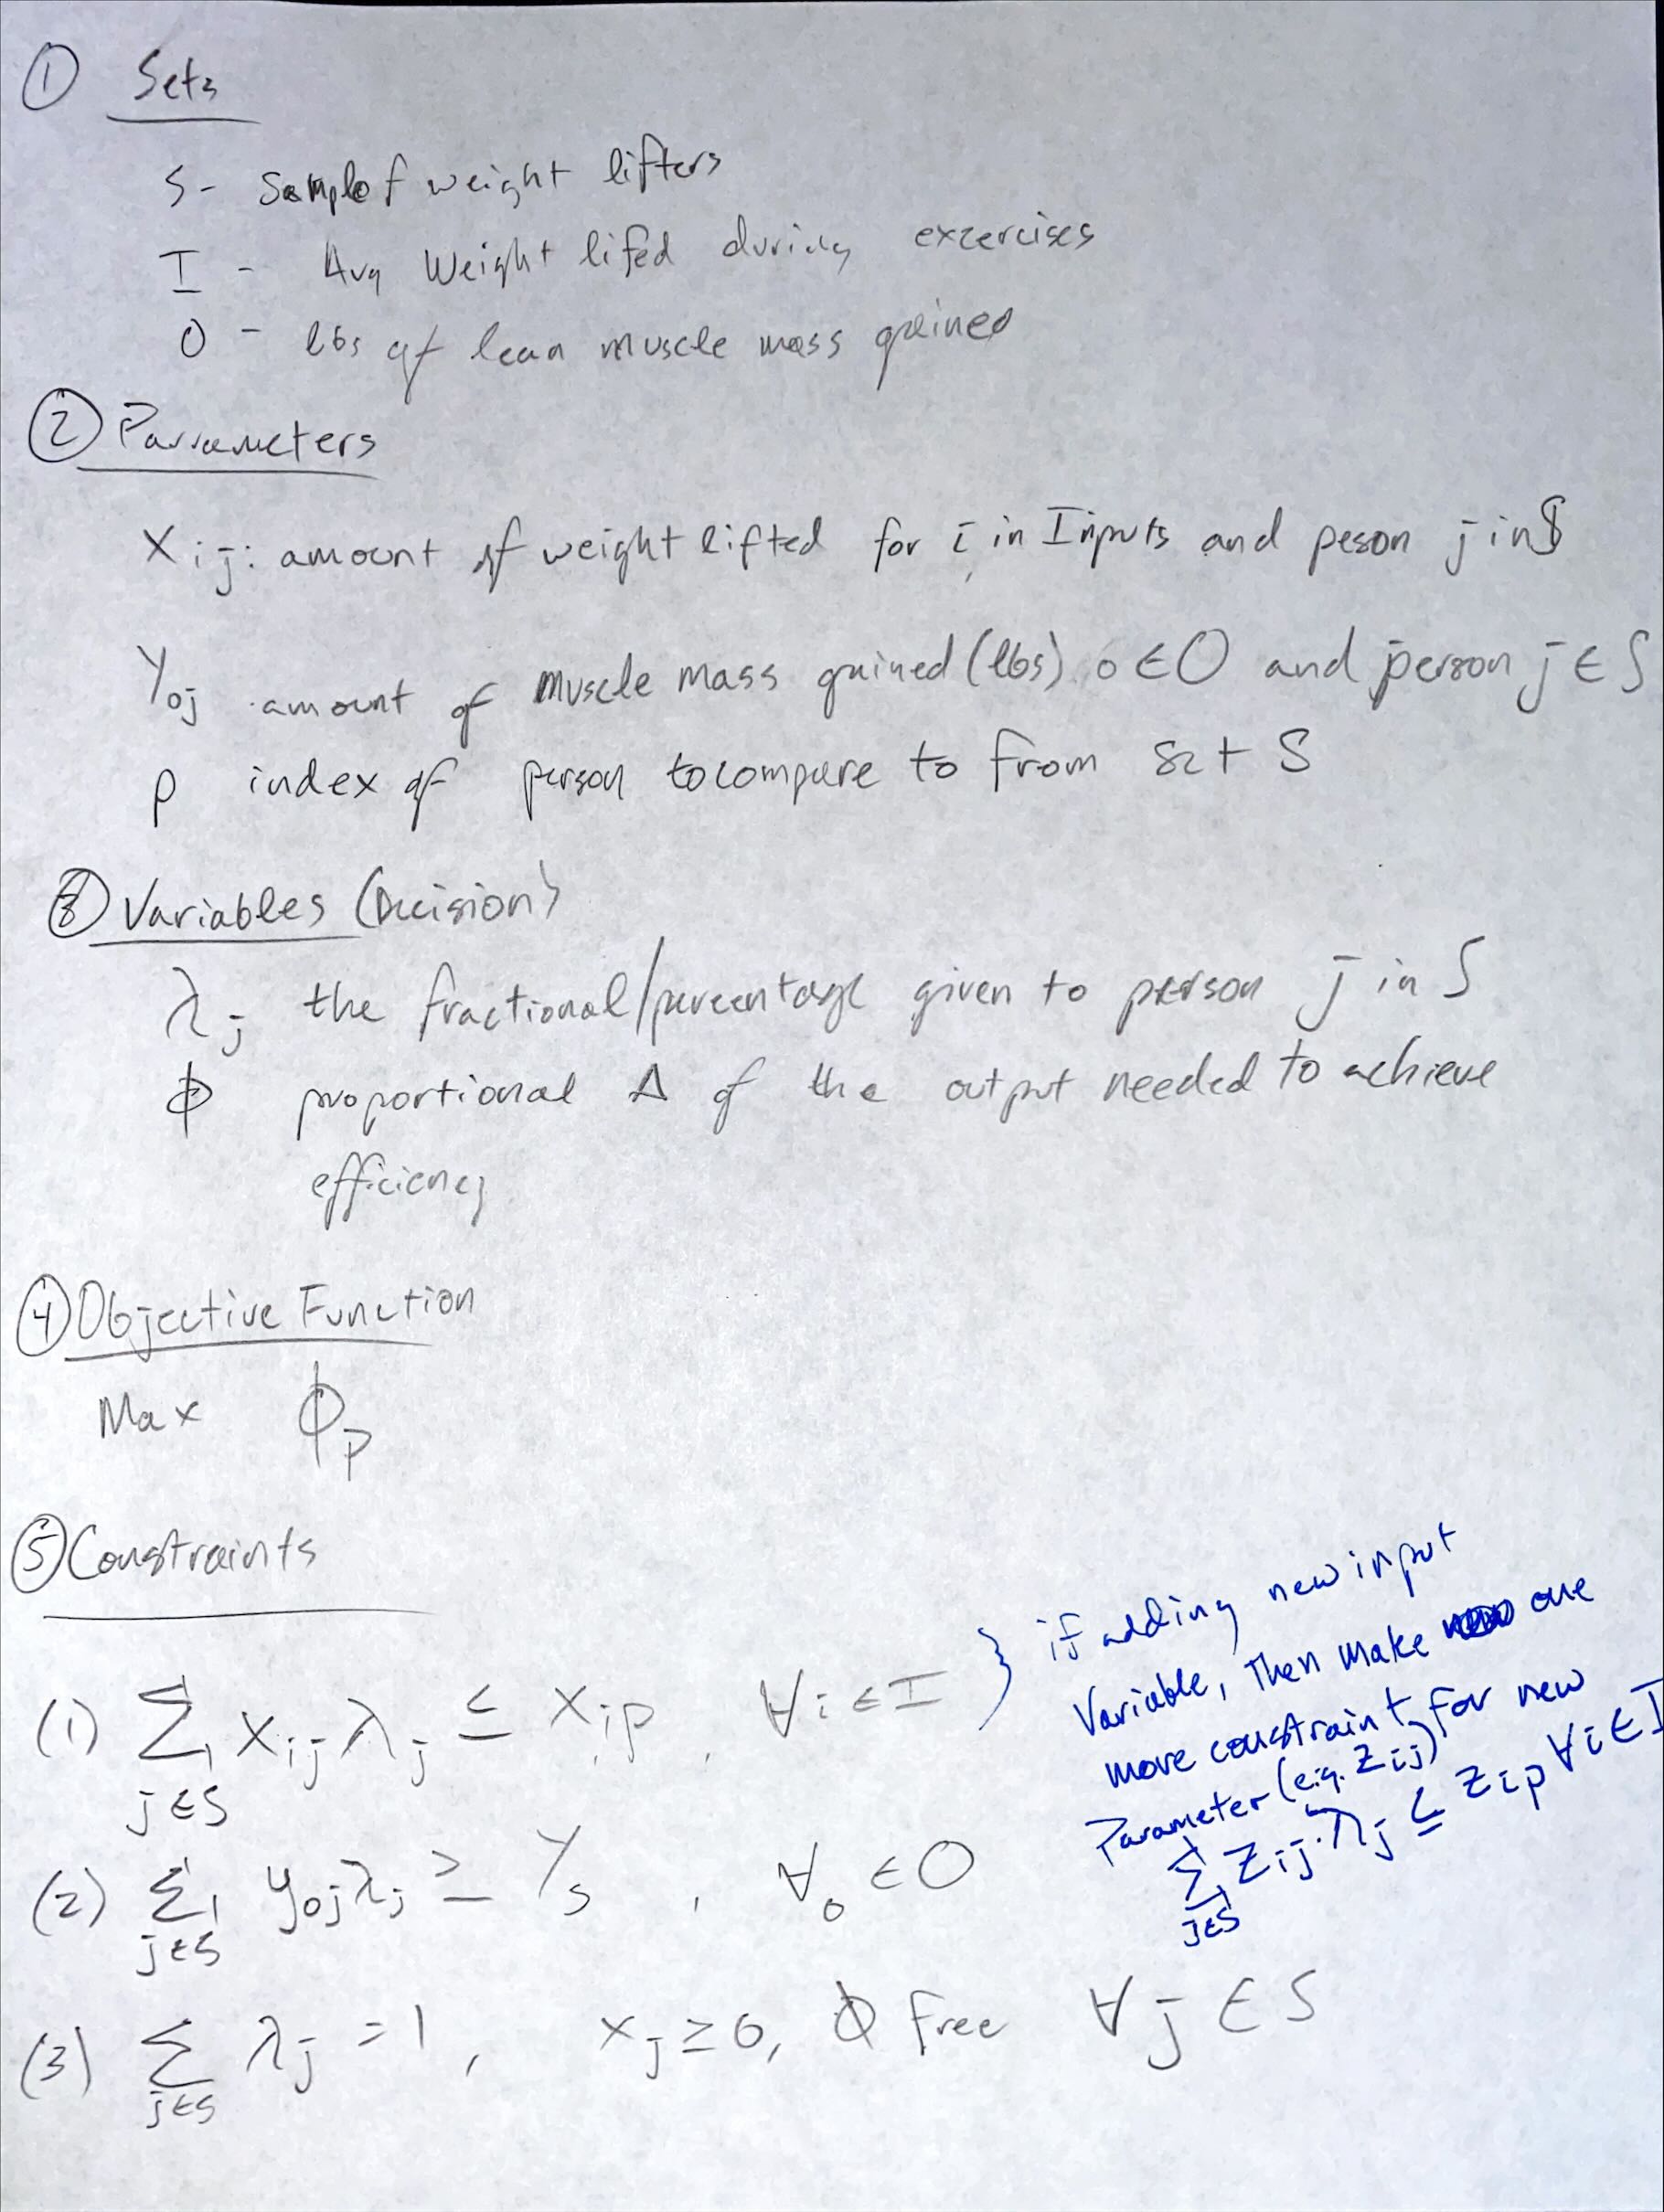 ① Sets
S - Sample of weight lifters
I - Avg Weight lifed during excercises
O - lbs of lean muscle mass gained
② Parameters
X ij: amount of weight lifted for i in Inputs and peson j in S
Y oj amount of muscle mass gained (lbs) o ∈ O and person j ∈ S
p index of person to compare to from set S
③ Variables (Decision)
λ j the fractional/percentage given to person j in S
ϕ proportional Δ of the output needed to achieve
efficiency
④ Objective Function
Max ϕ p
⑤ Constraints
(1) Σ j∈S x ij λ j ≤ x ip , ∀ i ∈ I }
if adding new input
Variable, Then make one
more constraint for new
Parameter (e.g. Z ij)
Σ j∈S Z ij · λ j ≤ Z ip ∀ i ∈ I
(2) Σ j∈S y oj λ j ≥ Y s , ∀ o ∈ O
(3) Σ j∈S λ j = 1 , x j ≥ 0, ϕ free ∀ j ∈ S